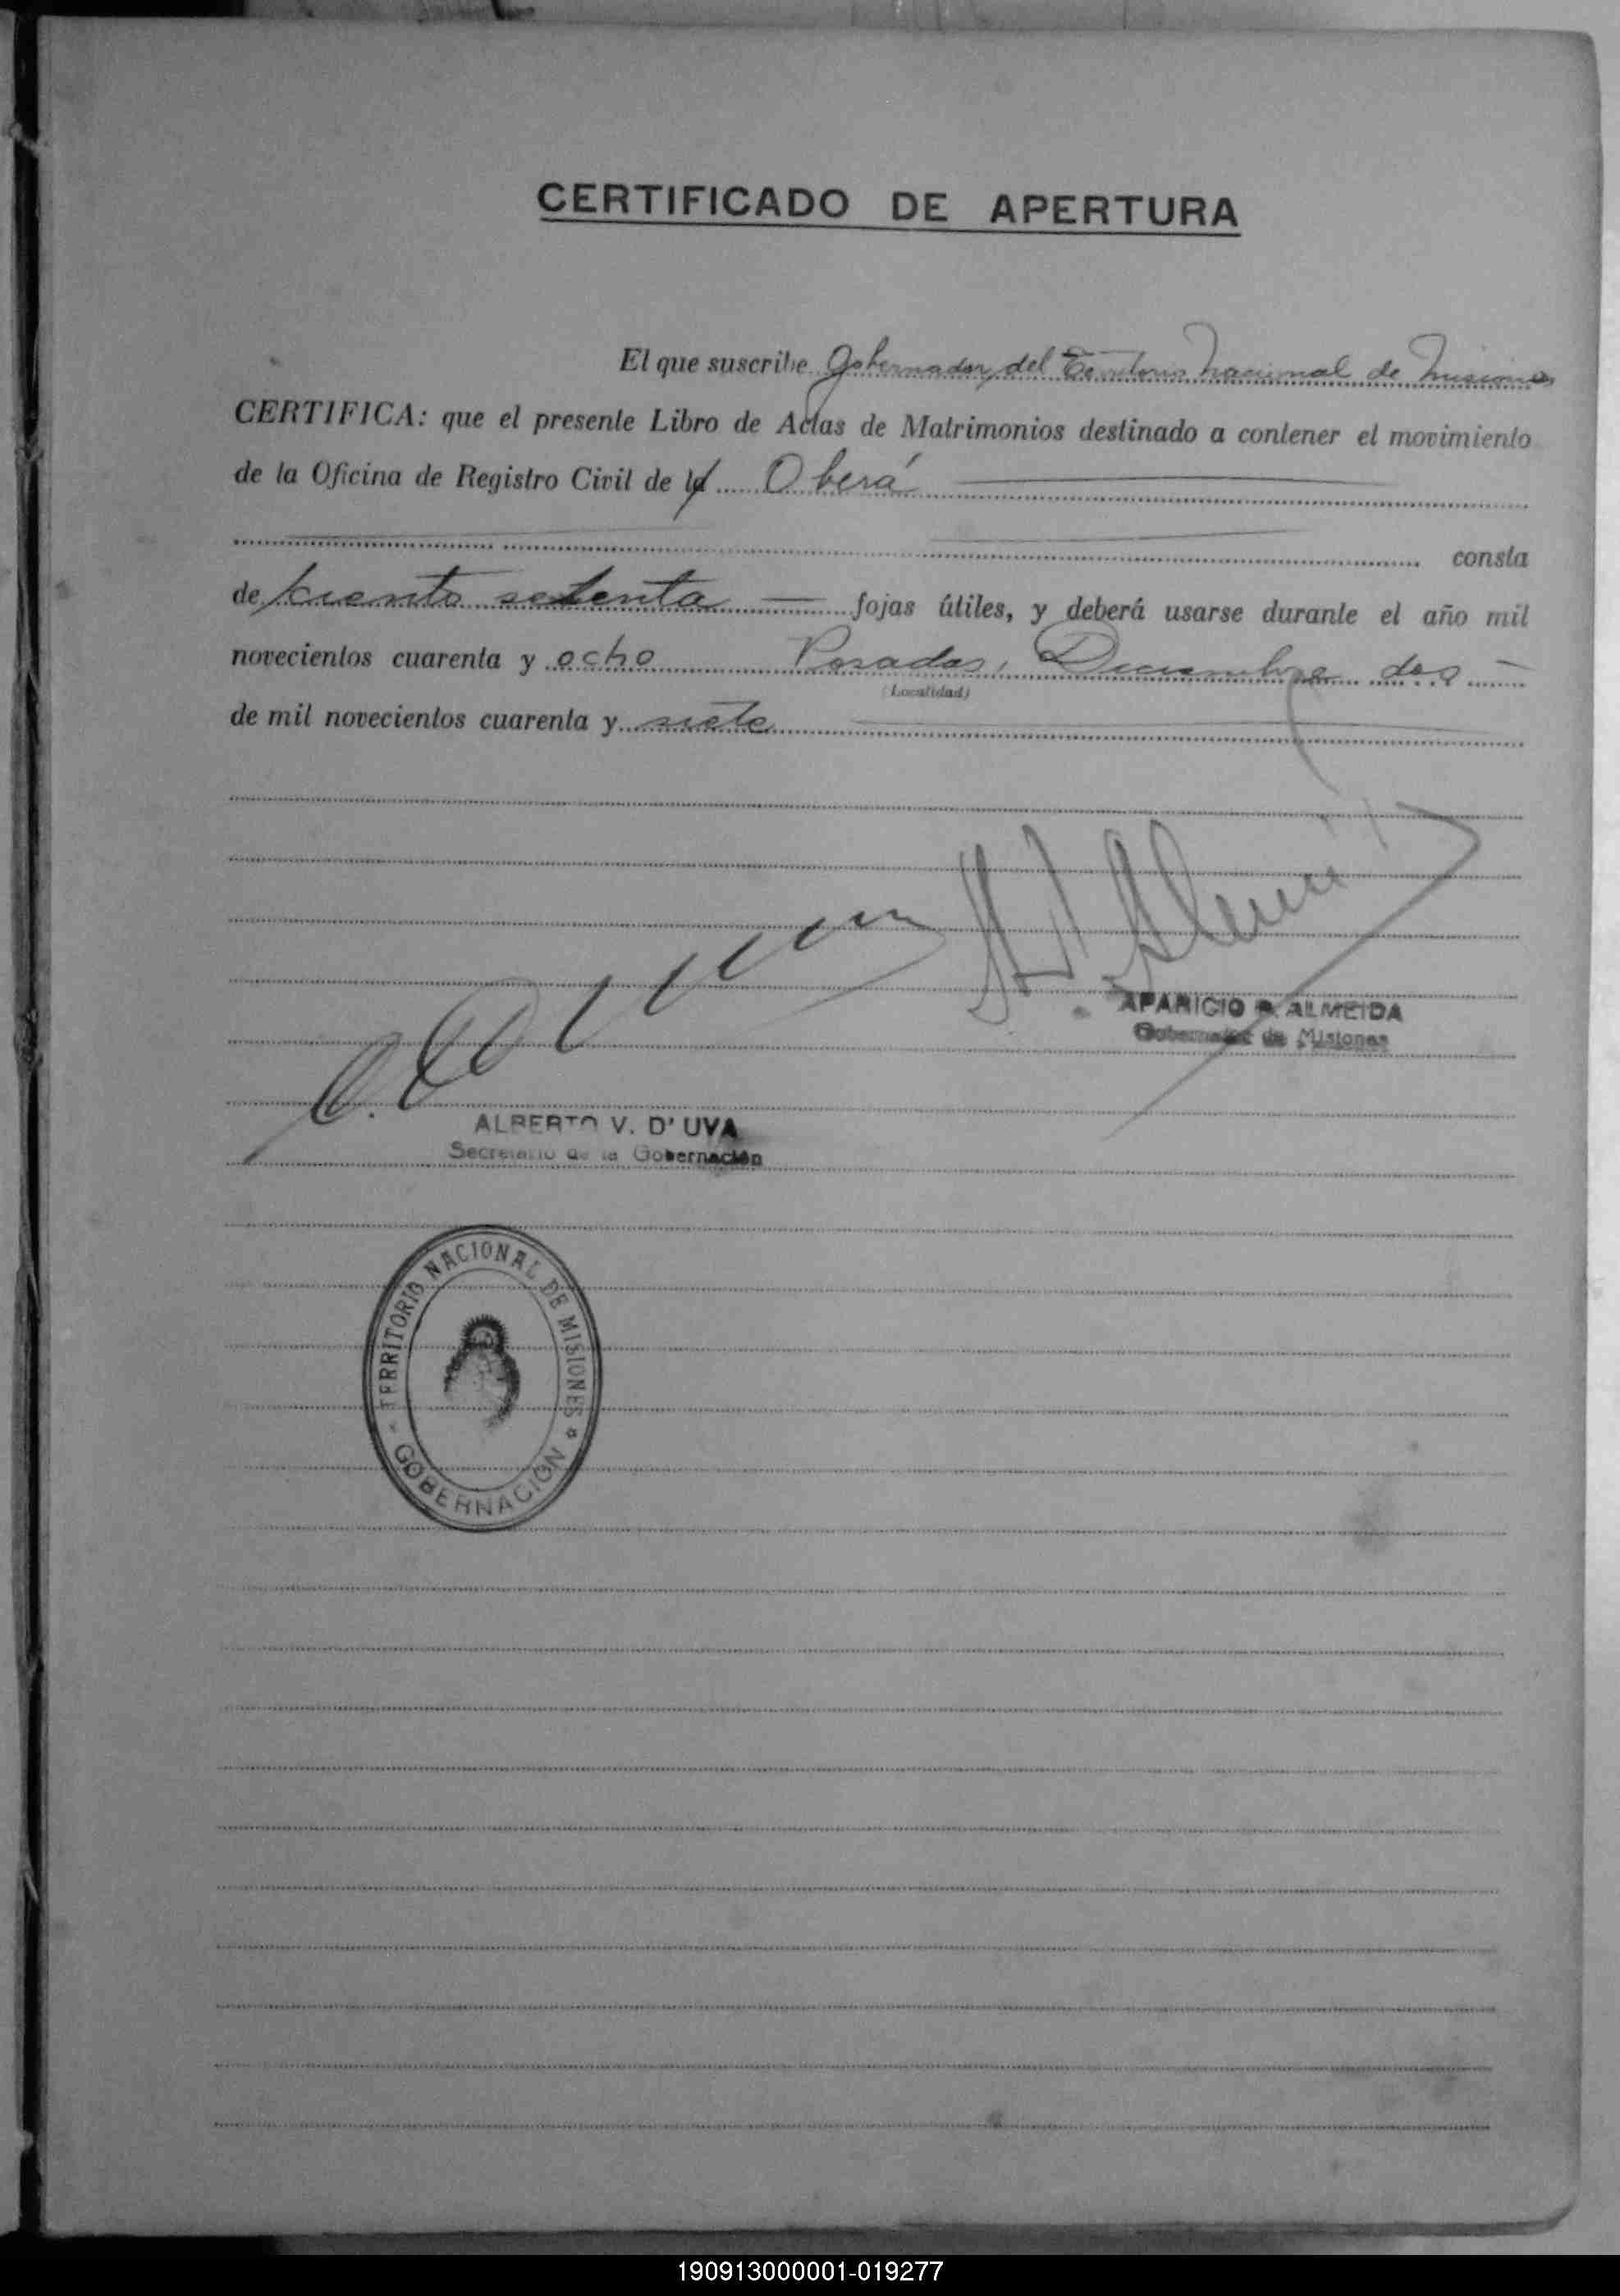 CERTIFICADO DE APERTURA
El que suscribe Gobernador del Territorio Nacional de Misiones
CERTIFICA: que el presente Libro de Actas de Matrimonios destinado a contener el movimiento
de la Oficina de Registro Civil de la Oberá
consta
de ciento setenta fojas útiles, y deberá usarse durante el año mil
novecientos cuarenta y ocho Posadas, Diciembre dos
(Localidad)
de mil novecientos cuarenta y siete
APARICIO ALMEIDA
Gobernador de Misiones
ALBERTO V. D' UVA
Secretario de la Gobernación
TERRITORIO NACIONAL DE MISIONES
GOBERNACIÓN
190913000001-019277